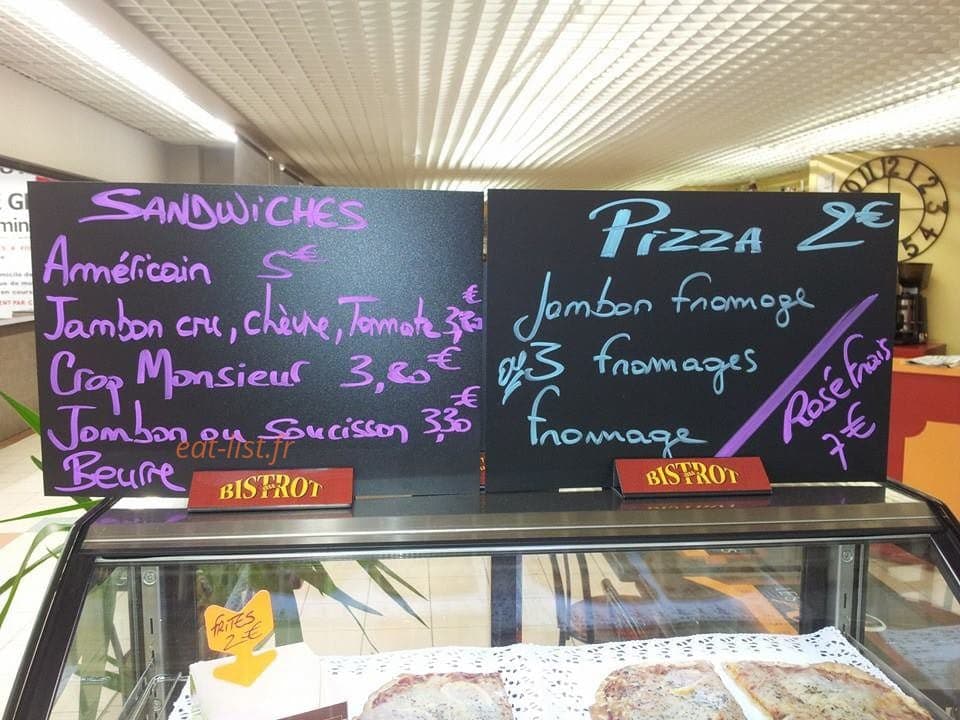 SANDWiCHES
Américain 5€
Jambon cru, chèvre, Tomate €
Croq Monsieur 3,80€
Jambon ou Soucisson 3,30€
Beurre
PIZZA 2€
Jambon fromage
ou 3 fromages
fromage
Rosé frais
7€
eat-list.fr
BISTROT
BISTROT
FRITES
2€
11 12 1 2 3 4 5